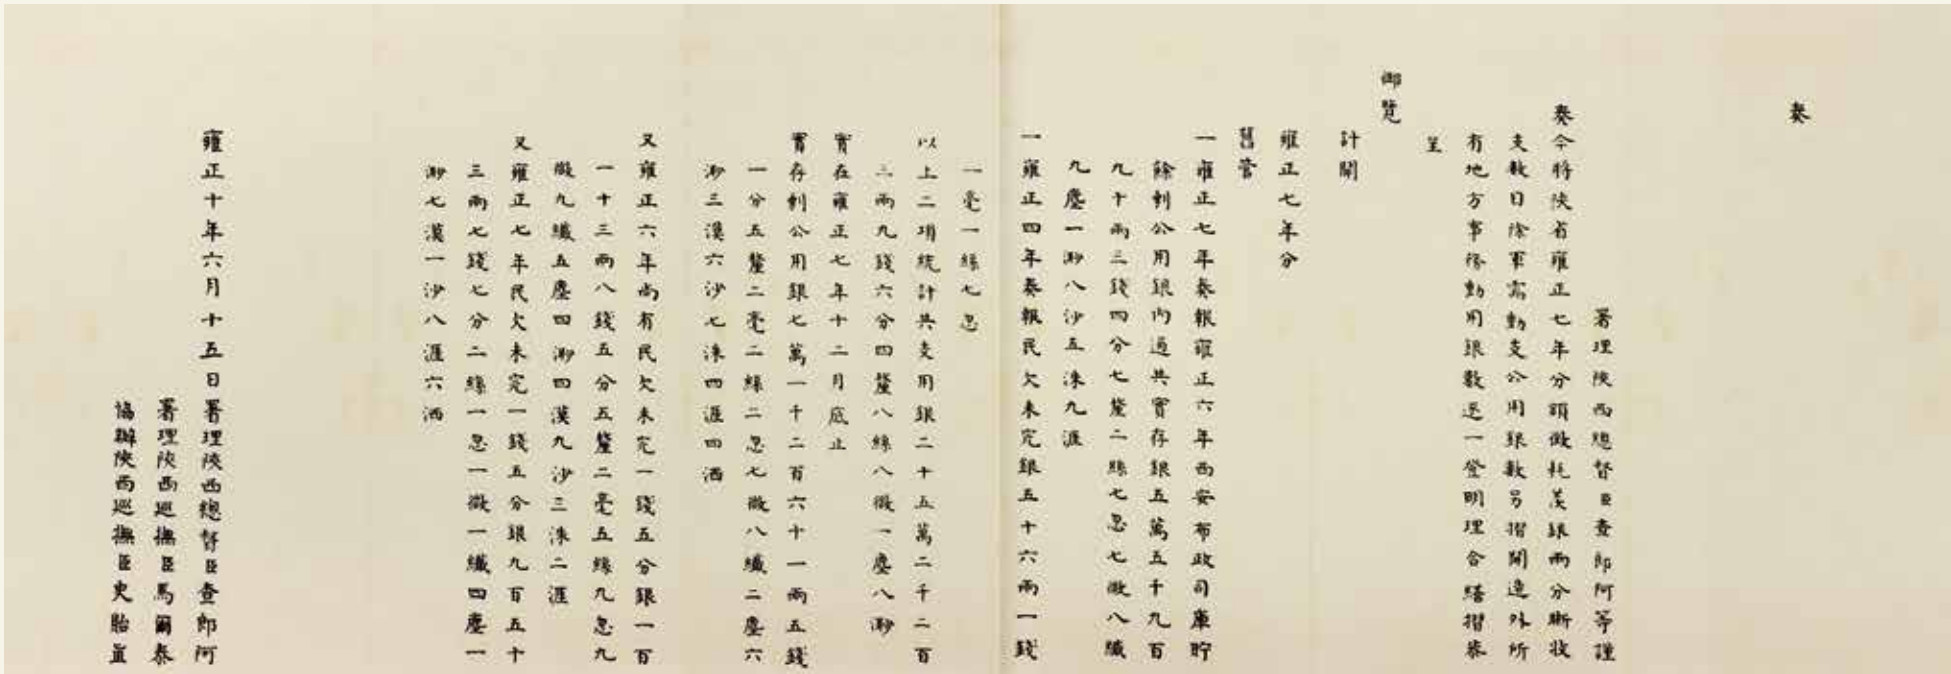 奏
署理陝西總督臣查郎阿等謹
奏今將陝省雍正七年分額徵耗羡銀兩分晰收
支數目除軍需動支公用銀數另摺開造外所
有地方事務動用銀數逐一登明理合繕摺恭
呈
御覽
計開
雍正七年分
舊管
一雍正七年奏報雍正六年西安布政司庫貯
餘剩公用銀內通共實存銀五萬五千九百
九十兩三錢四分七釐二絲七忽七微八纖
九塵一渺八沙五洙九涯
一雍正四年奏報民欠未完銀五十六兩一錢
一毫一絲七忽
以上二項統計共支用銀二十五萬二千二百
二兩九錢六分四釐八絲八微一塵八渺
實在雍正七年十二月底止
實存剩公用銀七萬一千二百六十一兩五錢
一分五釐二毫二絲二忽七微八纖二塵六
渺三漠六沙七洙四涯四洒
又雍正六年尚有民欠未完一錢五分銀一百
一十三兩八錢五分五釐二毫五絲九忽九
微九纖五塵四渺四漠九沙三洙二涯
又雍正七年民欠未完一錢五分銀九百五十
三兩七錢七分二絲一忽一微一纖四塵一
渺七漠一沙八涯六洒
雍正十年六月十五日署理陝西總督臣查郎阿
署理陝西巡撫臣馬爾泰
協辦陝西巡撫臣史貽直